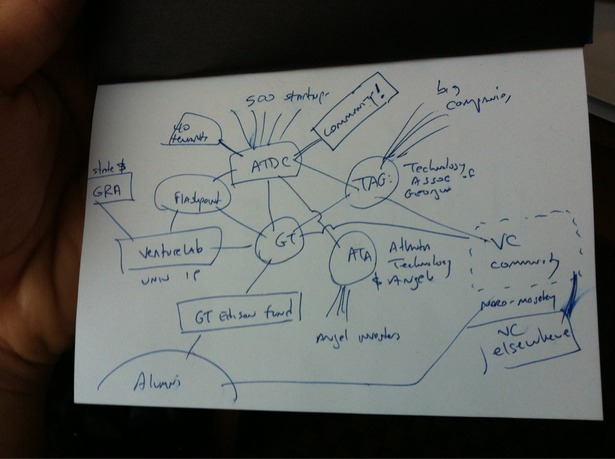 500 startups
big
companies
community!
40
tenants
ATDC
state $
GRA
Flashpoint
TAG:
Technology
Assoc of
Georgia
VentureLab
UNIV IP
GT
ATA
Atlanta
Technology
$ Angels
VC
community
GT Edison fund
Noro-moseley
angel investors
VC
elsewhere
Alumni